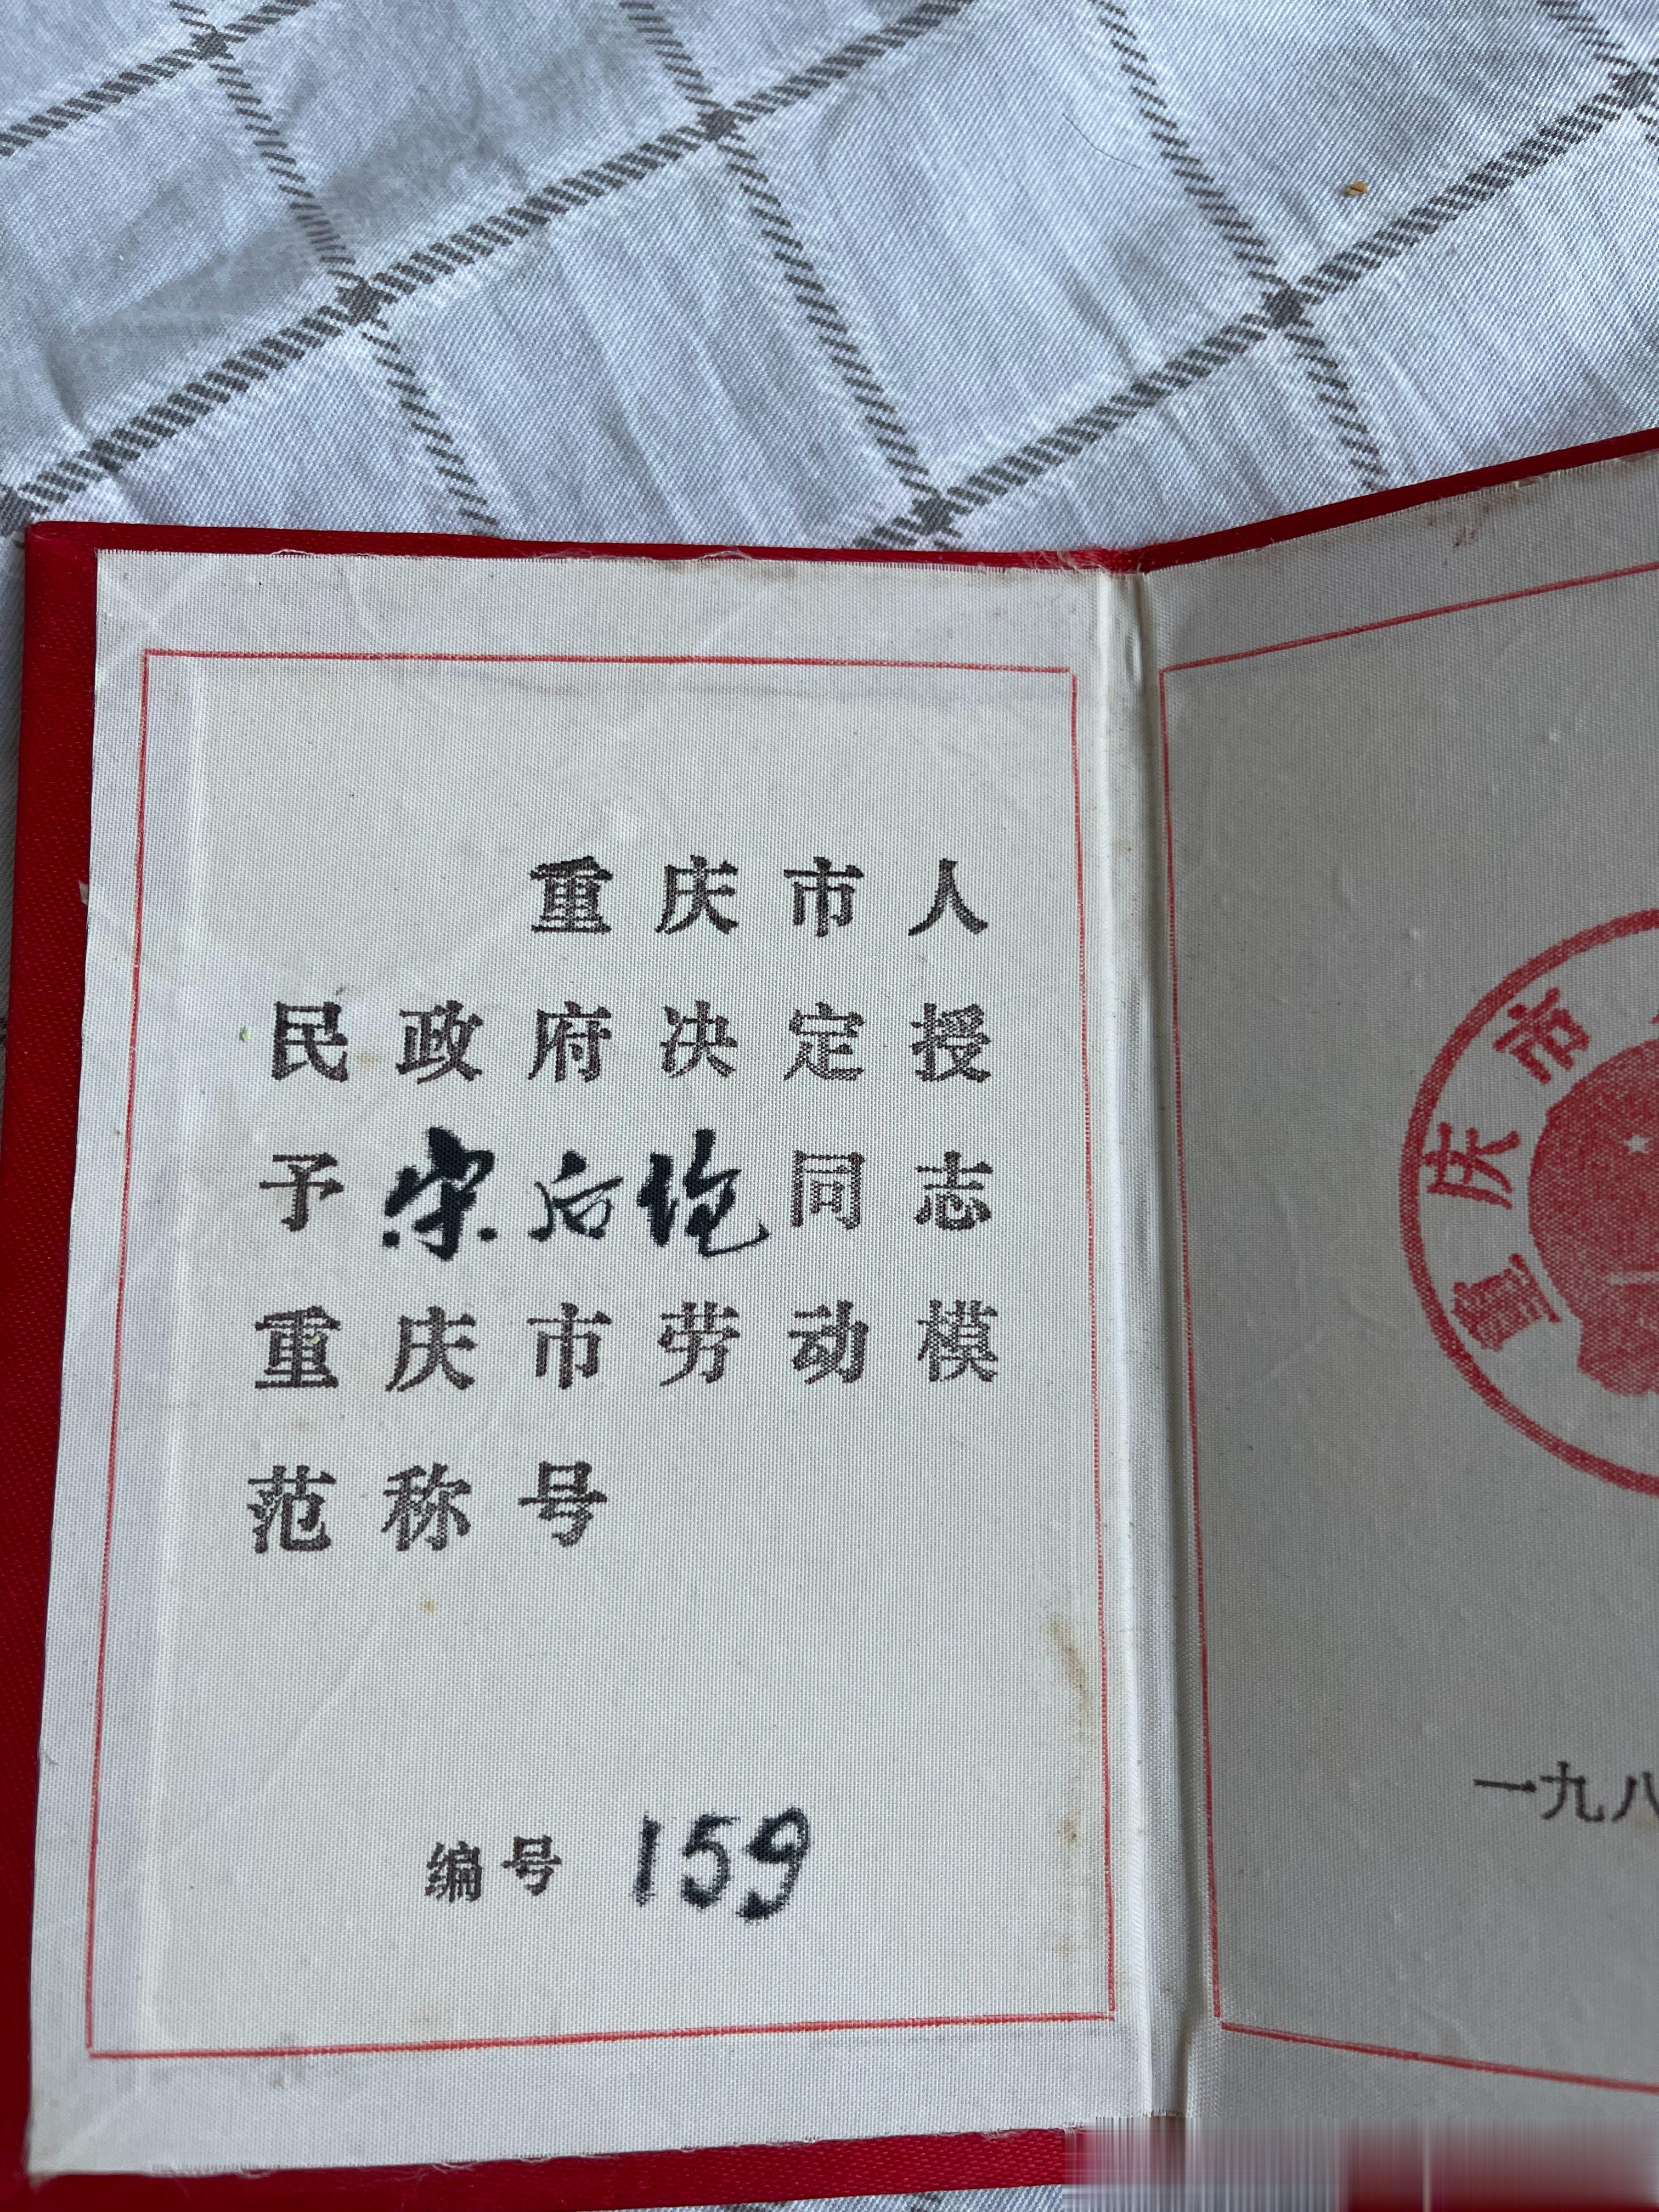 重庆市人
民政府决定授
予宋后伦同志
重庆市劳动模
范称号
编号 159
重庆市
一九八